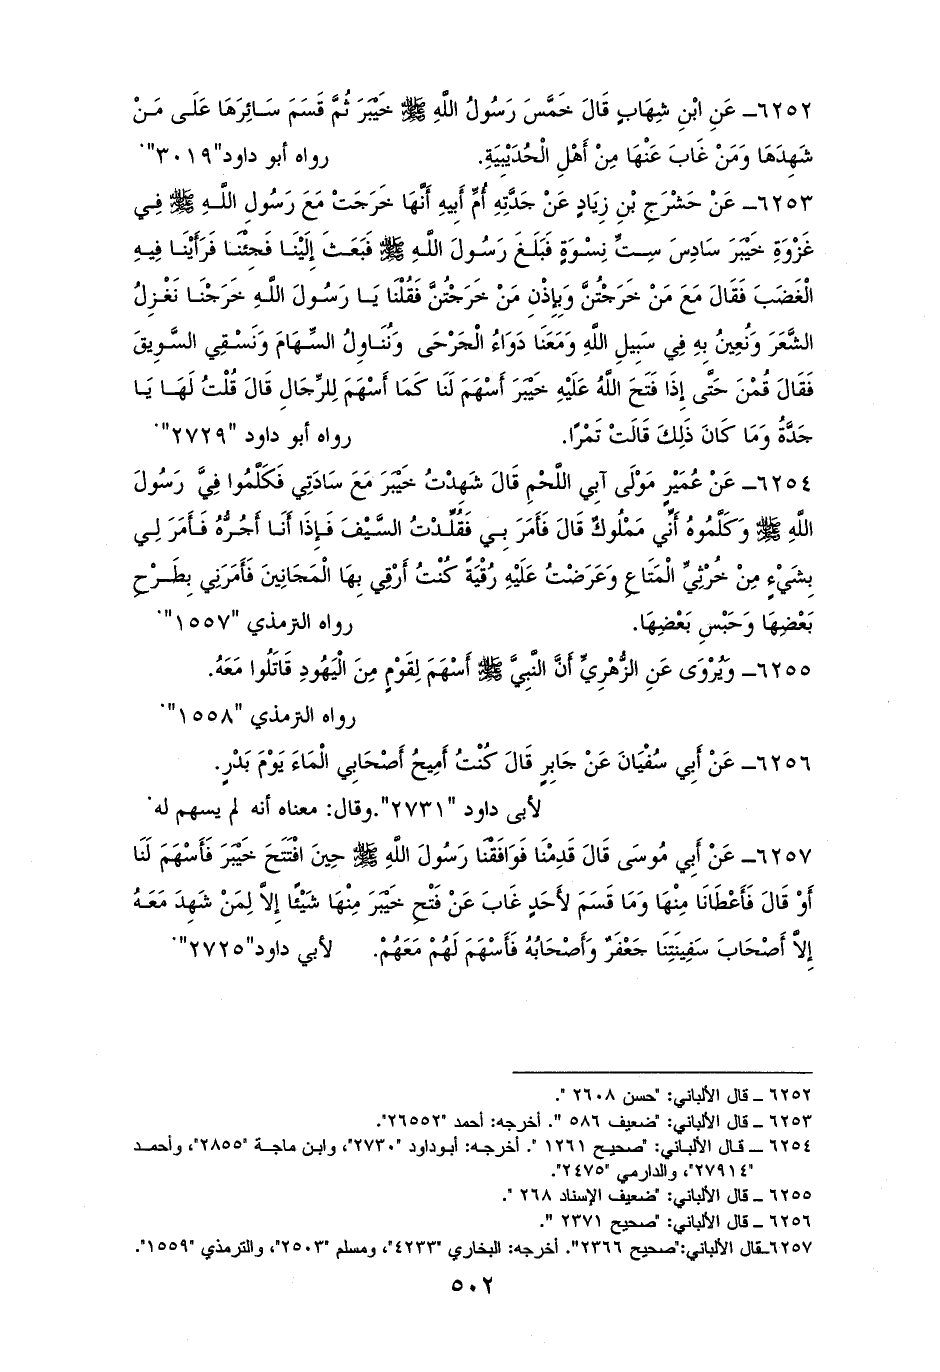 ٦٢٥٢ـ عَنِ ابْنِ شِهَابٍ قَالَ خَمَّسَ رَسُولُ اللَّهِ ﷺ خَيْبَرَ ثُمَّ قَسَمَ سَائِرَهَا عَلَى مَنْ
شَهِدَهَا وَمَنْ غَابَ عَنْهَا مِنْ أَهْلِ الْحُدَيْبِيَةِ. رواه أبو داود"٣٠١٩".
٦٢٥٣ـ عَنْ حَشْرَجِ بْنِ زِيَادٍ عَنْ جَدَّتِهِ أُمِّ أَبِيهِ أَنَّهَا خَرَجَتْ مَعَ رَسُولِ اللَّهِ ﷺ فِي
غَزْوَةِ خَيْبَرَ سَادِسَ سِتِّ نِسْوَةٍ فَبَلَغَ رَسُولَ اللَّهِ ﷺ فَبَعَثَ إِلَيْنَا فَجِئْنَا فَرَأَيْنَا فِيهِ
الْغَضَبَ فَقَالَ مَعَ مَنْ خَرَجْتُنَّ وَبِإِذْنِ مَنْ خَرَجْتُنَّ فَقُلْنَا يَا رَسُولَ اللَّهِ خَرَجْنَا نَغْزِلُ
الشَّعَرَ وَنُعِينُ بِهِ فِي سَبِيلِ اللَّهِ وَمَعَنَا دَوَاءُ الْجَرْحَى وَنُنَاوِلُ السِّهَامَ وَنَسْقِي السَّوِيقَ
فَقَالَ قُمْنَ حَتَّى إِذَا فَتَحَ اللَّهُ عَلَيْهِ خَيْبَرَ أَسْهَمَ لَنَا كَمَا أَسْهَمَ لِلرِّجَالِ قَالَ قُلْتُ لَهَا يَا
جَدَّةُ وَمَا كَانَ ذَلِكَ قَالَتْ تَمْرًا. رواه أبو داود "٢٧٢٩".
٦٢٥٤ـ عَنْ عُمَيْرٍ مَوْلَى آبِي اللَّحْمِ قَالَ شَهِدْتُ خَيْبَرَ مَعَ سَادَتِي فَكَلَّمُوا فِيَّ رَسُولَ
اللَّهِ ﷺ وَكَلَّمُوهُ أَنِّي مَمْلُوكٌ قَالَ فَأَمَرَ بِي فَقُلِّدْتُ السَّيْفَ فَإِذَا أَنَا أَجُرُّهُ فَأَمَرَ لِي
بِشَيْءٍ مِنْ خُرْثِيِّ الْمَتَاعِ وَعَرَضْتُ عَلَيْهِ رُقْيَةً كُنْتُ أَرْقِي بِهَا الْمَجَانِينَ فَأَمَرَنِي بِطَرْحِ
بَعْضِهَا وَحَبْسِ بَعْضِهَا. رواه الترمذي "١٥٥٧".
٦٢٥٥ـ وَيُرْوَى عَنِ الزُّهْرِيِّ أَنَّ النَّبِيَّ ﷺ أَسْهَمَ لِقَوْمٍ مِنَ الْيَهُودِ قَاتَلُوا مَعَهُ.
رواه الترمذي "١٥٥٨".
٦٢٥٦ـ عَنْ أَبِي سُفْيَانَ عَنْ جَابِرٍ قَالَ كُنْتُ أَمِيحُ أَصْحَابِي الْمَاءَ يَوْمَ بَدْرٍ.
لأبى داود "٢٧٣١".وقال: معناه أنه لم يسهم له.
٦٢٥٧ـ عَنْ أَبِي مُوسَى قَالَ قَدِمْنَا فَوَافَقْنَا رَسُولَ اللَّهِ ﷺ حِينَ افْتَتَحَ خَيْبَرَ فَأَسْهَمَ لَنَا
أَوْ قَالَ فَأَعْطَانَا مِنْهَا وَمَا قَسَمَ لأَحَدٍ غَابَ عَنْ فَتْحِ خَيْبَرَ مِنْهَا شَيْئًا إِلاَّ لِمَنْ شَهِدَ مَعَهُ
إِلاَّ أَصْحَابَ سَفِينَتِنَا جَعْفَرٌ وَأَصْحَابُهُ فَأَسْهَمَ لَهُمْ مَعَهُمْ. لأبي داود"٢٧٢٥".
٦٢٥٢ ـ قال الألباني: "حسن ٢٦٠٨ ".
٦٢٥٣ ـ قال الألباني: "ضعيف ٥٨٦ ". أخرجه: أحمد "٢٦٥٥٢".
٦٢٥٤ ـ قال الألباني: "صحيح ١٢٦١ ". أخرجه: أبوداود "٢٧٣٠"، وابن ماجة "٢٨٥٥"، وأحمد
"٢٧٩١٤"، والدارمي "٢٤٧٥".
٦٢٥٥ ـ قال الألباني: "ضعيف الإسناد ٢٦٨ ".
٦٢٥٦ ـ قال الألباني: "صحيح ٢٣٧١ ".
٦٢٥٧ـقال الألباني:"صحيح ٢٣٦٦". أخرجه: البخاري "٤٢٣٣"، ومسلم "٢٥٠٣"، والترمذي "١٥٥٩".
٥٠٢